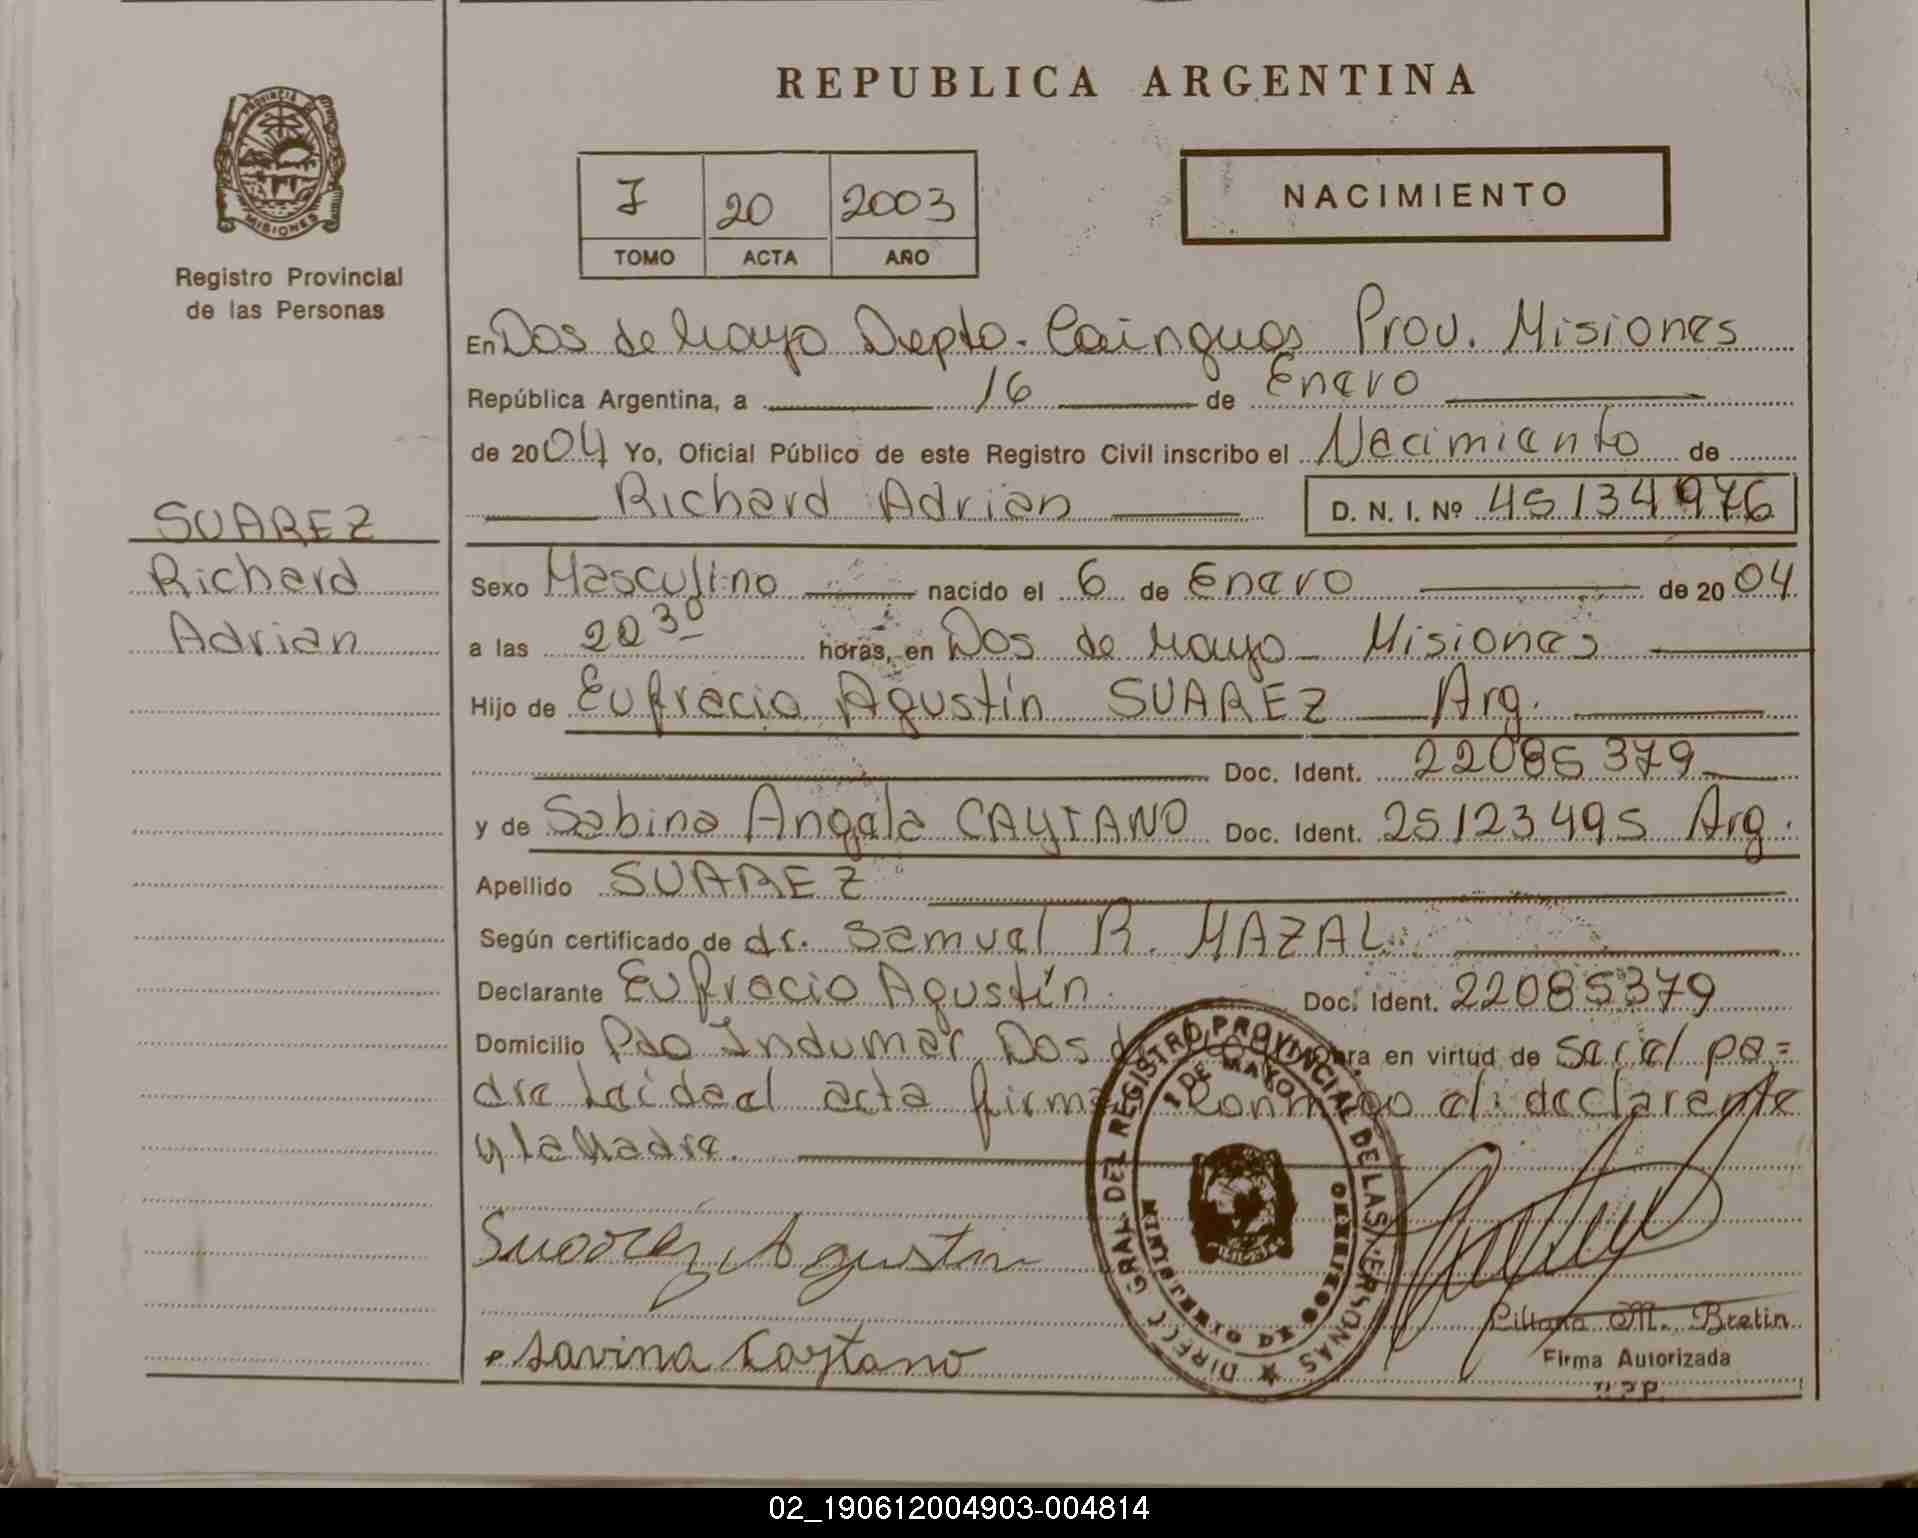 REPUBLICA ARGENTINA
PROVINCIA DE MISIONES
Registro Provincial
de las Personas
I 20 2003
TOMO ACTA AÑO
NACIMIENTO
En Dos de Mayo Depto. Cainguas Prov. Misiones
República Argentina, a 16 de Enero
de 2004 Yo, Oficial Público de este Registro Civil inscribo el Nacimiento de
Richard Adrian D. N. I. Nº 45134976
SUAREZ
Richard
Adrian
Sexo Masculino nacido el 6 de Enero de 2004
a las 20 30 horas, en Dos de Mayo - Misiones
Hijo de Eufracio Agustín SUAREZ Arg.
Doc. Ident. 22085379
y de Sabina Angela CAYTANO Doc. Ident. 25123495 Arg.
Apellido SUAREZ
Según certificado de dr. Samuel R. MAZAL
Declarante Eufracio Agustín Doc. Ident. 22085379
Domicilio Pdo Indumar Dos d Obra en virtud de ser el pa=
dre Leída el acta firma conmigo el declarante
y la Madre.
Suarez Agustin
Savina Caytano
DIREC. GRAL DEL REGISTRO PROVINCIAL DE LAS PERSONAS
DE MAYO
MINISTERIO DE GOBIERNO
Liliana M. Bretin
Firma Autorizada
R.P.P.
02_190612004903-004814